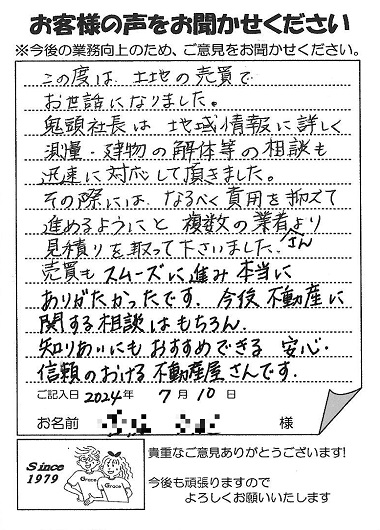 お客様の声をお聞かせください
※今後の業務向上のため、ご意見をお聞かせください。
この度は、土地の売買で
お世話になりました。
鬼頭社長は地域情報に詳しく
測量・建物の解体等の相談も
迅速に対応して頂きました。
その際には、なるべく費用を抑えて
進めるようにと複数の業者さんより
見積りを取って下さいました。
売買もスムーズに進み本当に
ありがたかったです。今後不動産に
関する相談はもちろん、
知りあいにもおすすめできる 安心・
信頼のおける不動産屋さんです。
ご記入日 2024年 7月 10日
お名前 様
Since
1979
Grace
Grace
貴重なご意見ありがとうございます!
今後も頑張りますので
よろしくお願いいたします